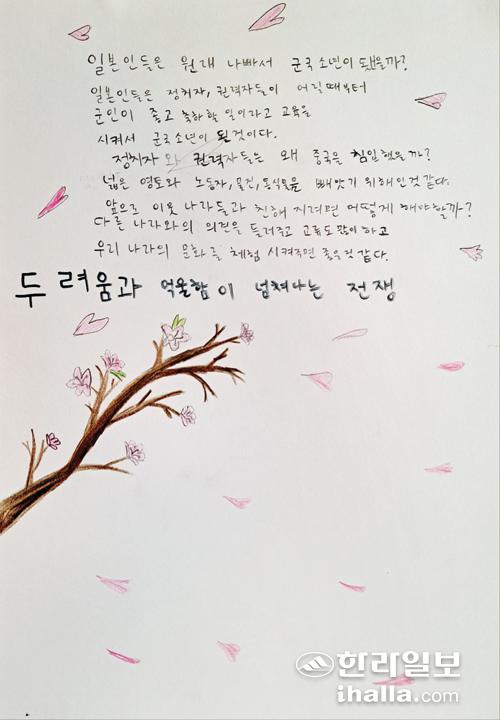 일본인들은 원래 나빠서 군국소년이 됐을까?
일본인들은 정치자, 권력자들이 어릴때부터
군인이 좋고 축하할 일이라고 교육을
시켜서 군국소년이 된것이다.
정치자와 권력자들은 왜 중국을 침입했을까?
넓은 영토와 노동자, 물건, 동식물을 빼앗기 위해인것 같다.
앞으로 이웃 나라들과 친해 지려면 어떻게 해야할까?
다른 나라와의 의견을 들려주고 교류도 많이 하고
우리 나라의 문화를 체험 시켜주면 좋을것 같다.
두려움과 억울함이 넘쳐나는 전쟁
한라일보
ihalla.com